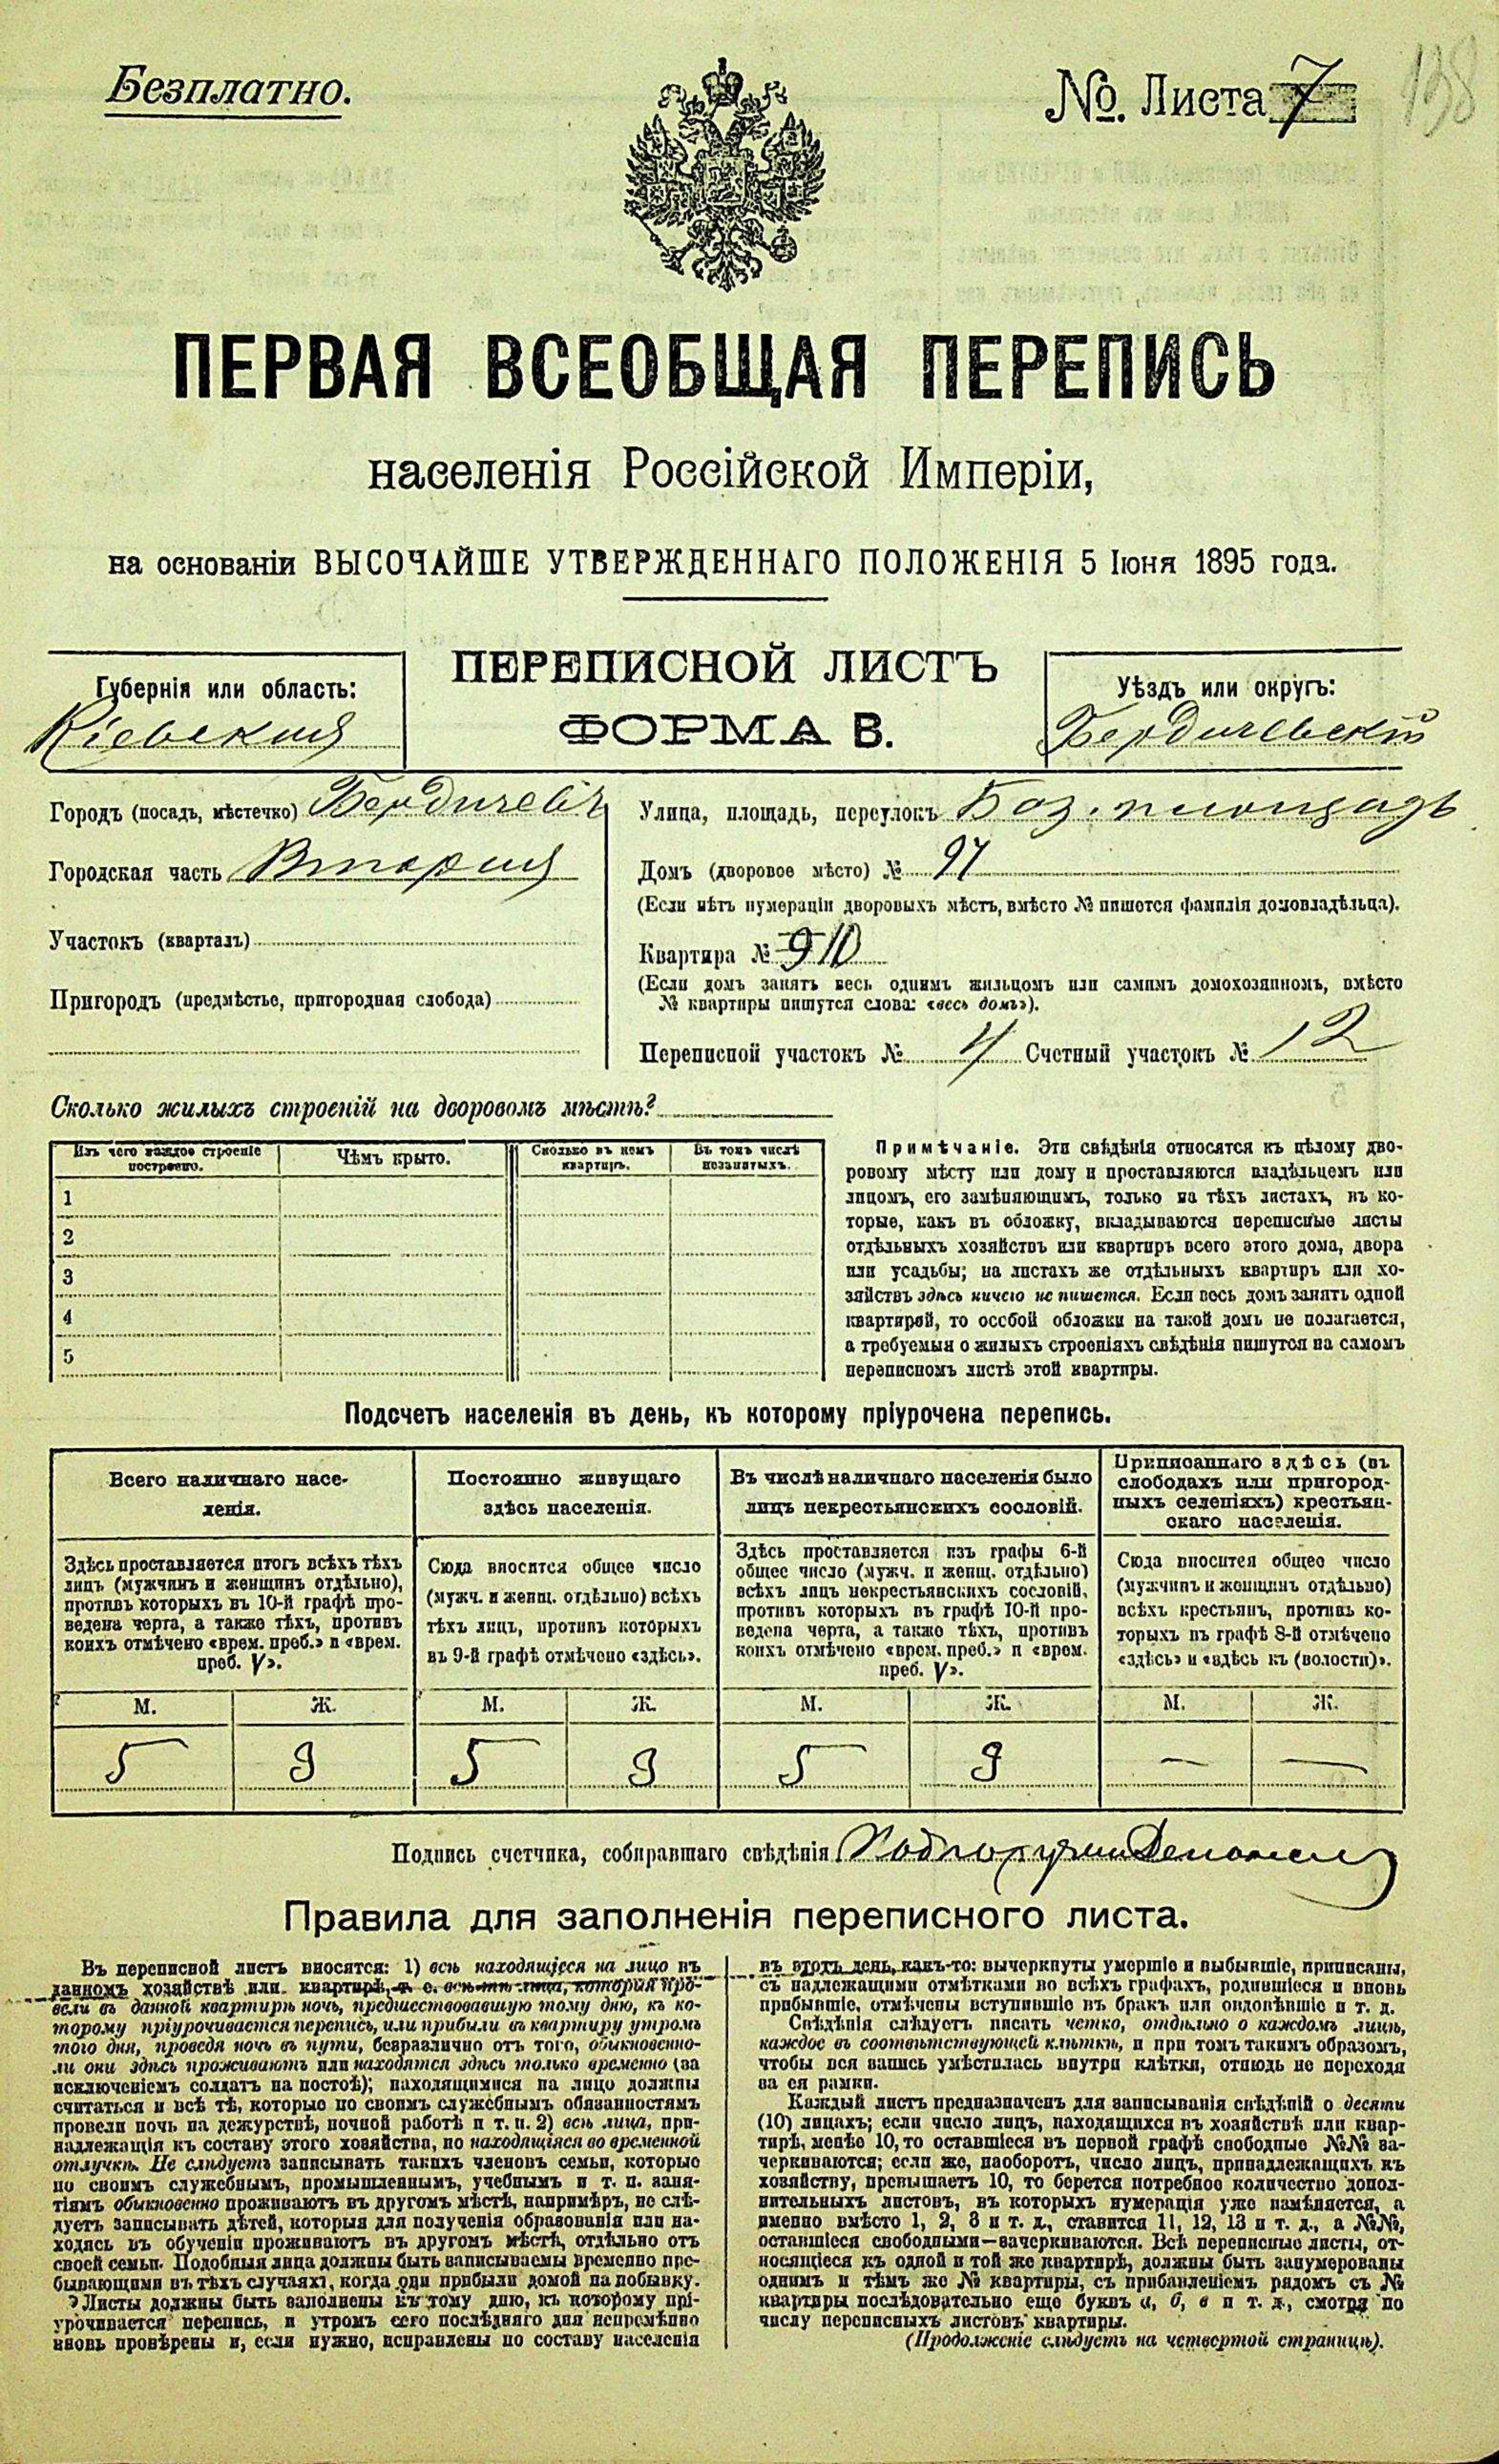 Безплатно.
№. Листа 7
138
ПЕРВАЯ ВСЕОБЩАЯ ПЕРЕПИСЬ
населенія Россійской Имперіи,
на основаніи ВЫСОЧАЙШЕ УТВЕРЖДЕННАГО ПОЛОЖЕНІЯ 5 Іюня 1895 года.
ПЕРЕПИСНОЙ ЛИСТЪ
ФОРМА В.
Губернія или область:
Кіевская
Уѣздъ или округъ:
Бердичевскій
Городъ (посадъ, мѣстечко) Бердичевъ
Городская часть Вторая
Участокъ (кварталъ)
Пригородъ (предмѣстье, пригородная слобода)
Улица, площадь, переулокъ Баз. площадь
Домъ (дворовое мѣсто) № 97
(Если нѣтъ нумераціи дворовыхъ мѣстъ, вмѣсто № пишется фамилія домовладѣльца).
Квартира № 9 10
(Если домъ занятъ весь однимъ жильцомъ или самимъ домохозяиномъ, вмѣсто
№ квартиры пишутся слова: «весь домъ»).
Переписной участокъ № 4 Счетный участокъ № 12
Сколько жилыхъ строеній на дворовомъ мѣстѣ?
Изъ чего каждое строеніе
построено.
Чѣмъ крыто.
Сколько въ немъ
квартиръ.
Въ томъ числѣ
незанятыхъ.
1
2
3
4
5
Примѣчаніе. Эти свѣдѣнія относятся къ цѣлому дво-
ровому мѣсту или дому и проставляются владѣльцемъ или
лицомъ, его замѣняющимъ, только на тѣхъ листахъ, въ ко-
торые, какъ въ обложку, вкладываются переписные листы
отдѣльныхъ хозяйствъ или квартиръ всего этого дома, двора
или усадьбы; на листахъ же отдѣльныхъ квартиръ или хо-
зяйствъ здѣсь ничего не пишется. Если весь домъ занятъ одной
квартирой, то особой обложки на такой домъ не полагается,
а требуемыя о жилыхъ строеніяхъ свѣдѣнія пишутся на самомъ
переписномъ листѣ этой квартиры.
Подсчетъ населенія въ день, къ которому пріурочена перепись.
Всего наличнаго насе-
ленія.
Здѣсь проставляется итогъ всѣхъ тѣхъ
лицъ (мужчинъ и женщинъ отдѣльно),
противъ которыхъ въ 10-й графѣ про-
ведена черта, а также тѣхъ, противъ
коихъ отмѣчено «врем. преб.» и «врем.
преб. V».
Постоянно живущаго
здѣсь населенія.
Сюда вносится общее число
(мужч. и женщ. отдѣльно) всѣхъ
тѣхъ лицъ, противъ которыхъ
въ 9-й графѣ отмѣчено «здѣсь».
Въ числѣ наличнаго населенія было
лицъ некрестьянскихъ сословій.
Здѣсь проставляется изъ графы 6-й
общее число (мужч. и женщ. отдѣльно)
всѣхъ лицъ некрестьянскихъ сословій,
противъ которыхъ въ графѣ 10-й про-
ведена черта, а также тѣхъ, противъ
коихъ отмѣчено «врем. преб.» и «врем.
преб. V».
Приписаннаго здѣсь (въ
слободахъ или пригород-
ныхъ селеніяхъ) крестьян-
скаго населенія.
Сюда вносится общее число
(мужчинъ и женщинъ отдѣльно)
всѣхъ крестьянъ, противъ ко-
торыхъ въ графѣ 8-й отмѣчено
«здѣсь» и «здѣсь къ (волости)».
М. Ж. М. Ж. М. Ж. М. Ж.
5 3 5 3 5 3 — —
Подпись счетчика, собиравшаго свѣдѣнія
Правила для заполненія переписного листа.
Въ переписной листъ вносятся: 1) всѣ находящіеся на лицо въ
данномъ хозяйствѣ или квартирѣ, т. е. всѣ тѣ лица, которыя про-
вели въ данной квартирѣ ночь, предшествовавшую тому дню, къ ко-
торому пріурочивается перепись, или прибыли въ квартиру утромъ
того дня, проведя ночь въ пути, безразлично отъ того, обыкновенно-
ли они здѣсь проживаютъ или находятся здѣсь только временно (за
исключеніемъ солдатъ на постоѣ); находящимися на лицо должны
считаться и всѣ тѣ, которые по своимъ служебнымъ обязанностямъ
провели ночь на дежурствѣ, ночной работѣ и т. п. 2) всѣ лица, при-
надлежащія къ составу этого хозяйства, но находящіяся во временной
отлучкѣ. Не слѣдуетъ записывать такихъ членовъ семьи, которые
по своимъ служебнымъ, промышленнымъ, учебнымъ и т. п. заня-
тіямъ обыкновенно проживаютъ въ другомъ мѣстѣ, напримѣръ, не слѣ-
дуетъ записывать дѣтей, которыя для полученія образованія или на-
ходясь въ обученіи проживаютъ въ другомъ мѣстѣ, отдѣльно отъ
своей семьи. Подобныя лица должны быть записываемы временно пре-
бывающими въ тѣхъ случаяхъ, когда они прибыли домой на побывку.
Листы должны быть заполнены къ тому дню, къ которому прі-
урочивается перепись, и утромъ сего послѣдняго дня непремѣнно
вновь провѣрены и, если нужно, исправлены по составу населенія
въ этотъ день, какъ-то: вычеркнуты умершіе и выбывшіе, приписаны,
съ надлежащими отмѣтками во всѣхъ графахъ, родившіеся и вновь
прибывшіе, отмѣчены вступившіе въ бракъ или овдовѣвшіе и т. д.
Свѣдѣнія слѣдуетъ писать четко, отдѣльно о каждомъ лицѣ,
каждое въ соотвѣтствующей клѣткѣ, и при томъ такимъ образомъ,
чтобы вся запись умѣстилась внутри клѣтки, отнюдь не переходя
за ея рамки.
Каждый листъ предназначенъ для записыванія свѣдѣній о десяти
(10) лицахъ; если число лицъ, находящихся въ хозяйствѣ или квар-
тирѣ, менѣе 10, то оставшіеся въ первой графѣ свободные №№ за-
черкиваются; если же, наоборотъ, число лицъ, принадлежащихъ къ
хозяйству, превышаетъ 10, то берется потребное количество допол-
нительныхъ листовъ, въ которыхъ нумерація уже измѣняется, а
именно вмѣсто 1, 2, 3 и т. д., ставится 11, 12, 13 и т. д., а №№,
оставшіеся свободными—зачеркиваются. Всѣ переписные листы, от-
носящіеся къ одной и той же квартирѣ, должны быть занумерованы
однимъ и тѣмъ же № квартиры, съ прибавленіемъ рядомъ съ №
квартиры послѣдовательно еще буквъ а, б, в и т. д., смотря по
числу переписныхъ листовъ квартиры.
(Продолженіе слѣдуетъ на четвертой страницѣ).